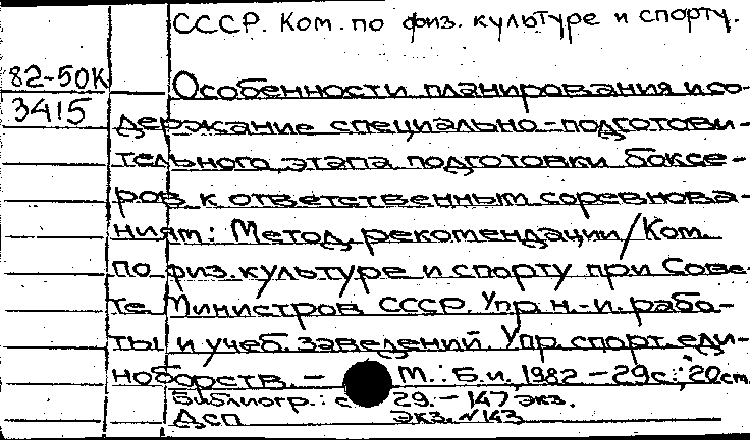 СССР. Ком. по физ. культуре и спорту.
82-50К
3415
Особенности планирования и со-
держание специально-подготови-
тельного этапа подготовки боксе-
ров к ответственным соревнова-
ниям: Метод. рекомендации/Ком.
по физ. культуре и спорту при Сове-
те Министров СССР. Упр. н.-и. рабо-
ты и учеб. заведений. Упр. спорт. еди-
ноборств. - М.: Б.и., 1982 - 29с.; 20см
Библиогр.: с 29. - 147 экз.
Дсп экз. №143